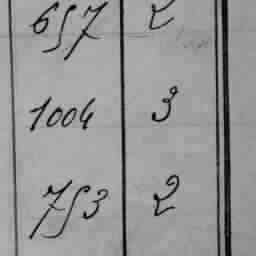 657 2
1004 3
753 2